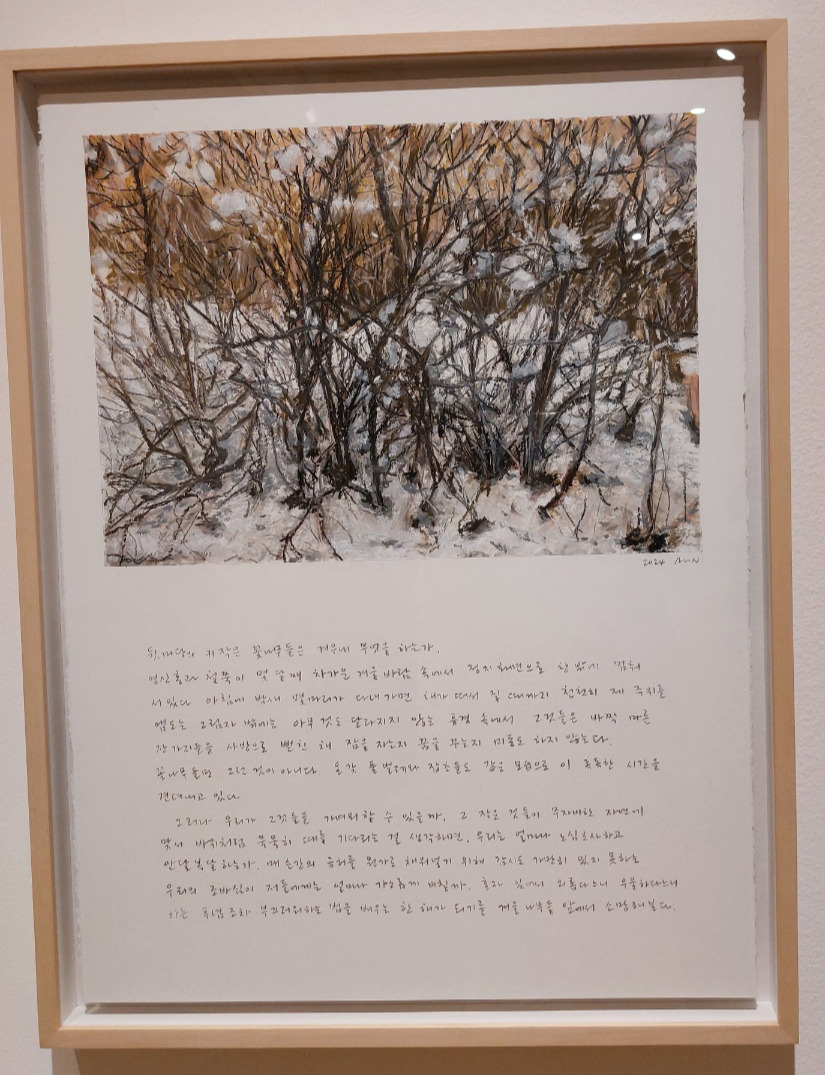 2024 AHN
뒷마당의 키 작은 꽃나무들은 겨우내 무엇을 하는가.
영산홍과 철쭉이 몇 달째 차가운 겨울 바람 속에서 정지화면으로 창 밖에 멈춰
서있다. 아침에 박새 몇마리가 다녀가면 해가 떠서 질 때까지 천천히 제 주위를
맴도는 그림자 밖에는 아무 것도 달라지지 않는 풍경 속에서 그것들은 바짝 마른
잔가지들을 사방으로 뻗친 채 잠을 자는지 꿈을 꾸는지 미동도 하지 않는다.
꽃나무들만 그런 것이 아니다. 온갖 풀벌레와 짐승들도 같은 모습으로 이 혹독한 시간을
견뎌내고 있다.
그러나 우리가 그것들을 가여워할 수 있을까. 그 작은 것들이 무자비한 자연에
맞서 바위처럼 묵묵히 때를 기다리는 걸 생각하면, 우리는 얼마나 노심초사하고
안달복달하는가. 매 순간의 공허를 뭔가로 채워넣기 위해 잠시도 가만히 있지 못하는
우리의 조바심이 저들에게는 얼마나 가소롭게 비칠까. 혼자 있어서 외롭다느니 우울하다느니
하는 푸념조차 부끄러워하는 법을 배우는 한 해가 되기를 겨울 나무들 앞에서 소망해본다.